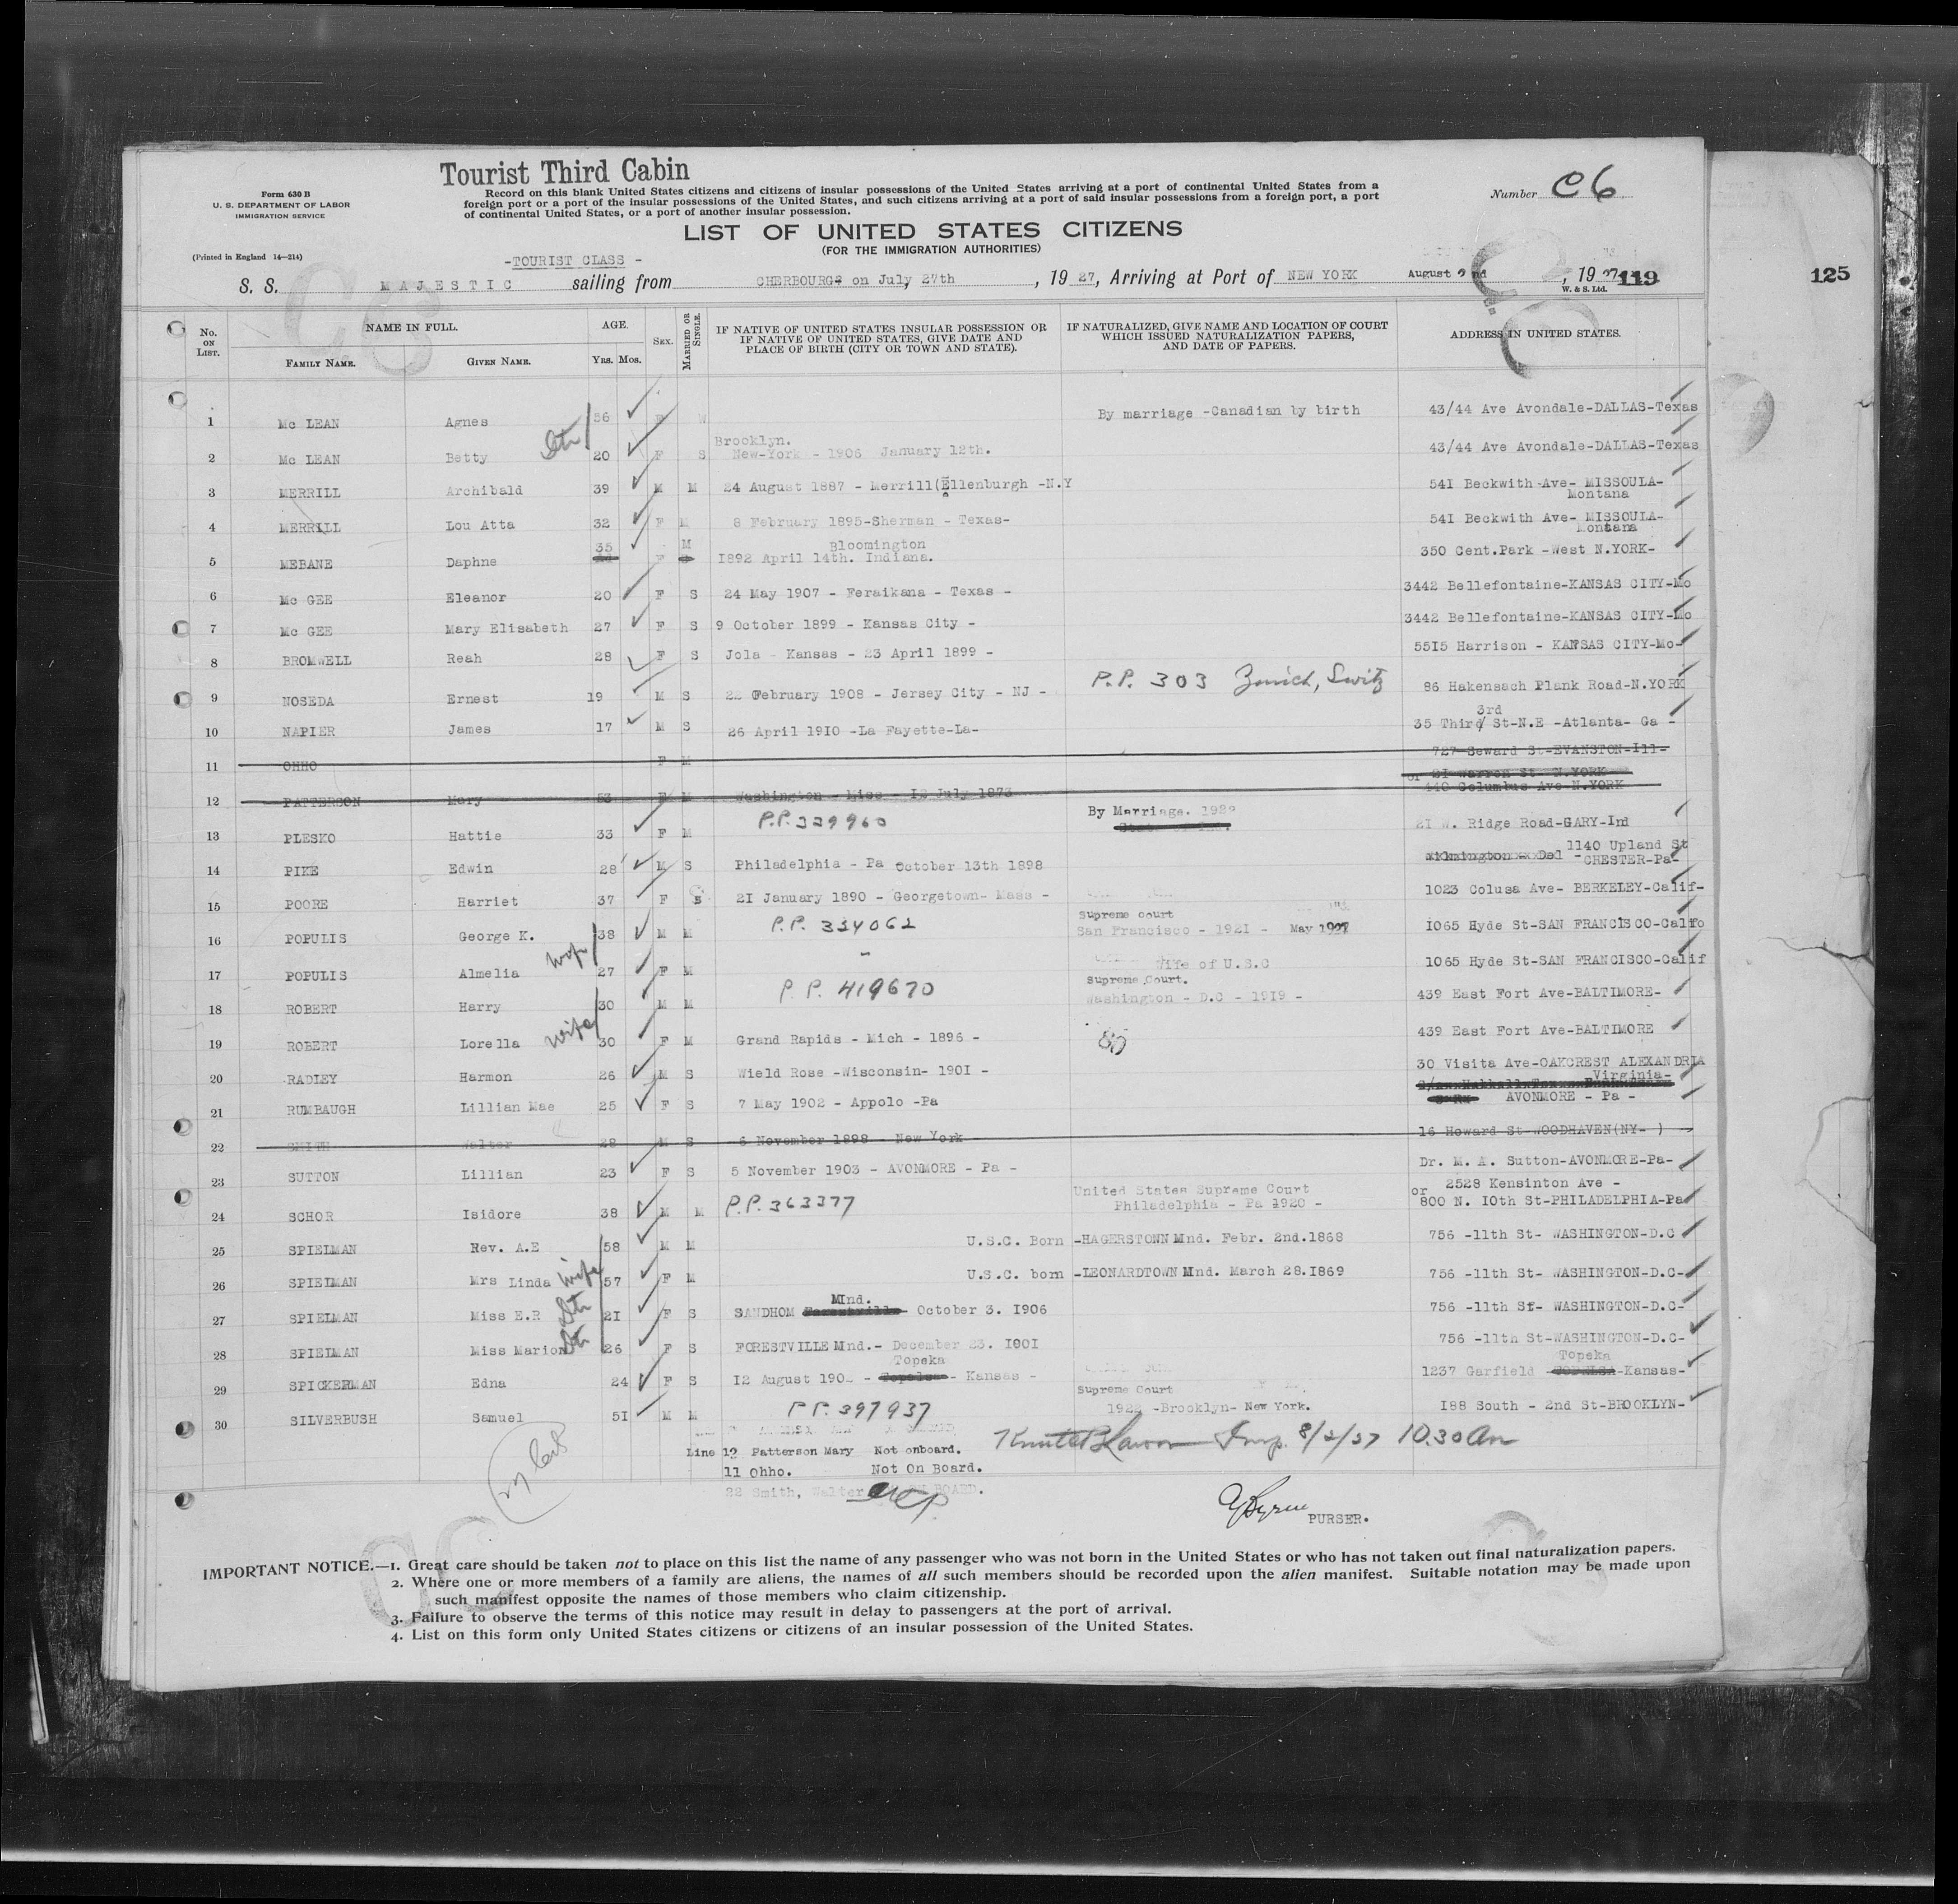 Tourist Third Cabin
Form 630 B
U. S. DEPARTMENT OF LABOR
IMMIGRATION SERVICE
Record on this blank United States citizens and citizens of insular possessions of the United States arriving at a port of continental United States from a
foreign port or a port of the insular possessions of the United States, and such citizens arriving at a port of said insular possessions from a foreign port, a port
of continental United States, or a port of another insular possession.
Number C6
LIST OF UNITED STATES CITIZENS
(FOR THE IMMIGRATION AUTHORITIES)
(Printed in England 14—214)
-TOURIST CLASS -
S. S. MAJESTIC sailing from CHERBOURG on July 27th, 1927, Arriving at Port of NEW YORK August 2nd, 1927 119
W. & S. Ltd.
125
No. ON LIST. NAME IN FULL. AGE. SEX. MARRIED OR SINGLE. IF NATIVE OF UNITED STATES INSULAR POSSESSION OR IF NATIVE OF UNITED STATES, GIVE DATE AND PLACE OF BIRTH (CITY OR TOWN AND STATE). IF NATURALIZED, GIVE NAME AND LOCATION OF COURT WHICH ISSUED NATURALIZATION PAPERS, AND DATE OF PAPERS. ADDRESS IN UNITED STATES.
FAMILY NAME. GIVEN NAME. YRS. MOS.
1 Mc LEAN Agnes 56 F W By marriage -Canadian by birth 43/44 Ave Avondale-DALLAS-Texas
2 Mc LEAN Betty 20 F S Brooklyn. New-York - 1906 January 12th. 43/44 Ave Avondale-DALLAS-Texas
3 MERRILL Archibald 39 M M 24 August 1887 - Merrill(Ellenburgh -N.Y 541 Beckwith Ave- MISSOULA- Montana
4 MERRILL Lou Atta 32 F M 8 February 1895-Sherman - Texas- 541 Beckwith Ave- MISSOULA- Montana
5 MEBANE Daphne 35 F M 1892 April 14th. Bloomington Indiana. 350 Cent.Park -West N.YORK-
6 Mc GEE Eleanor 20 F S 24 May 1907 - Feraikana - Texas - 3442 Bellefontaine-KANSAS CITY-Mo
7 Mc GEE Mary Elisabeth 27 F S 9 October 1899 - Kansas City - 3442 Bellefontaine-KANSAS CITY-Mo
8 BROMWELL Reah 28 F S Jola - Kansas - 23 April 1899 - 5515 Harrison - KANSAS CITY-Mo-
9 NOSEDA Ernest 19 M S 22 February 1908 - Jersey City - NJ - P.P. 303 Zurich, Switz 86 Hakensach Plank Road-N.YORK
10 NAPIER James 17 M S 26 April 1910 -La Fayette-La- 35 Third 3rd St-N.E -Atlanta- Ga -
11 OHHO F M 727 Seward St-EVANSTON-Ill-
or 21 Warren St- N.YORK
12 PATTERSON Mary 53 F M Washington - Miss - 12 July 1873 440 Columbus Ave-N.YORK
13 PLESKO Hattie 33 F M P.P. 329960 By Marriage. 1922 21 W. Ridge Road-GARY-Ind
14 PIKE Edwin 28 M S Philadelphia - Pa October 13th 1898 1140 Upland St -CHESTER-Pa-
15 POORE Harriet 37 F S 21 January 1890 - Georgetown- Mass - 1023 Colusa Ave- BERKELEY-Calif-
16 POPULIS George K. 38 M M P.P. 334062 Supreme court San Francisco - 1921 - May 1927 1065 Hyde St-SAN FRANCISCO-Califo
17 POPULIS Almelia wife 27 F M Wife of U.S.C 1065 Hyde St-SAN FRANCISCO-Calif
18 ROBERT Harry 30 M M P.P. 419670 Supreme Court. Washington - D.C - 1919 - 439 East Fort Ave-BALTIMORE-
19 ROBERT Lorella wife 30 F M Grand Rapids - Mich - 1896 - 439 East Fort Ave-BALTIMORE
20 RADLEY Harmon 26 M S Wield Rose -Wisconsin- 1901 - 30 Visita Ave-OAKCREST ALEXANDRIA Virginia-
21 RUMBAUGH Lillian Mae 25 F S 7 May 1902 - Appolo -Pa AVONMORE - Pa -
22 SMITH Walter 28 M S 6 November 1898 - New York 16 Howard St-WOODHAVEN(NY- )
23 SUTTON Lillian 23 F S 5 November 1903 - AVONMORE - Pa - Dr. M. A. Sutton-AVONMORE-Pa-
24 SCHOR Isidore 38 M M P.P. 363377 United States Supreme Court Philadelphia - Pa 1920 - 2528 Kensinton Ave - or 800 N. 10th St-PHILADELPHIA-Pa
25 SPIELMAN Rev. A.E 58 M M U.S.C. Born -HAGERSTOWN Mnd. Febr. 2nd.1868 756 -11th St- WASHINGTON-D.C
26 SPIELMAN Mrs Linda wife 57 F M U.S.C. born -LEONARDTOWN Mnd. March 28.1869 756 -11th St- WASHINGTON-D.C-
27 SPIELMAN Miss E.R 21 F S SANDHOM MInd. October 3. 1906 756 -11th St- WASHINGTON-D.C-
28 SPIELMAN Miss Marion 26 F S FORESTVILLE Mnd.- December 23. 1901 756 -11th St-WASHINGTON-D.C-
29 SPICKERMAN Edna 24 F S 12 August 190 - Topeka - Kansas - 1237 Garfield Topeka -Kansas-
30 SILVERBUSH Samuel 51 M M P.P. 397937 Supreme Court 1922 -Brooklyn- New York. 188 South - 2nd St-BROOKLYN-
Line 12 Patterson Mary Not onboard.
8/2/27 10.30 Am
11 Ohho. Not On Board.
22 Smith, Walter BOARD.
PURSER.
IMPORTANT NOTICE.—1. Great care should be taken not to place on this list the name of any passenger who was not born in the United States or who has not taken out final naturalization papers.
2. Where one or more members of a family are aliens, the names of all such members should be recorded upon the alien manifest. Suitable notation may be made upon
such manifest opposite the names of those members who claim citizenship.
3. Failure to observe the terms of this notice may result in delay to passengers at the port of arrival.
4. List on this form only United States citizens or citizens of an insular possession of the United States.